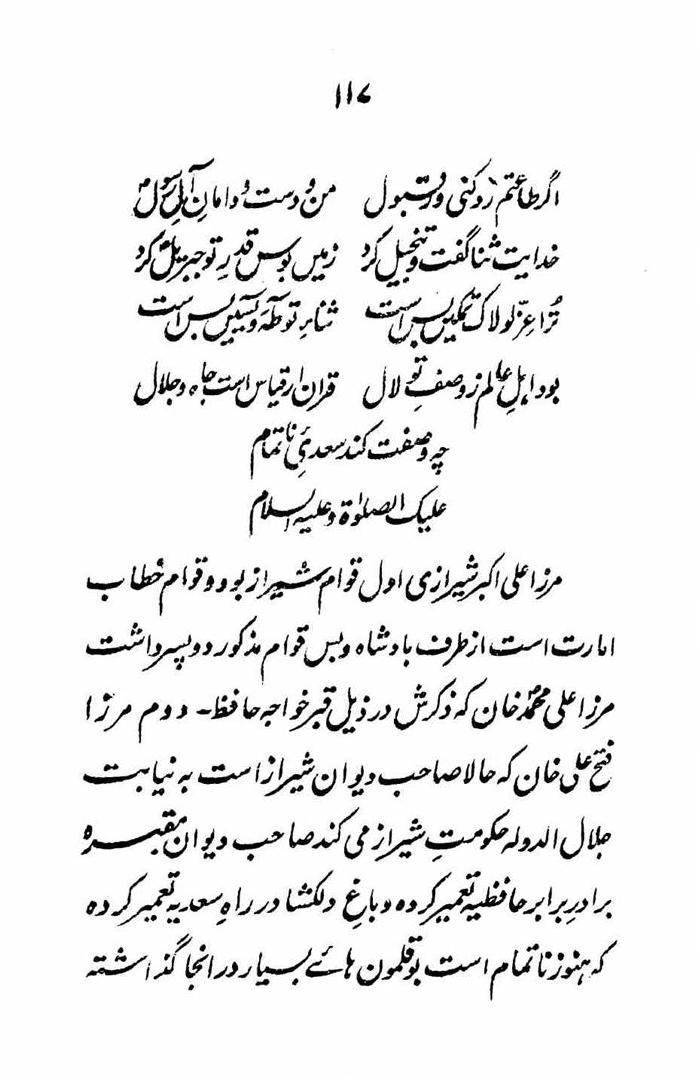 ۱۱۷
اگر طاعتم رد کنی ور قبول من و دست و دامان آلِ رسول
خدایت ثنا گفت و تبجیل کرد زمیں بوس قدرِ تو جبریل کرد
تُرا عزّ لولاک تمکیں بس است ثناءِ تو طٰهٰ و یٰسیں بس است
بود اہلِ عالم ز وصفِ تو لال قران ار قیاس است جاہ و جلال
چه وصفت کند سعدیٔ ناتمام
علیک الصلوٰة و علیہ السلام
مرزا علی اکبر شیرازی اول قوام شیراز بود و قوام خطاب
امارت است از طرف بادشاہ و بس قوام مذکور دو پسر داشت
مرزا علی محمد خان که ذکرش در ذیل قبر خواجہ حافظ۔ دوم مرزا
فتح علی خان که حالا صاحب دیوان شیراز است به نیابت
جلال الدولہ حکومتِ شیراز می کند صاحب دیوان مقبره
برادرِ برابر حافظیہ تعمیر کرده و باغِ دلکشا در راہِ سعدیہ تعمیر کرده
که ہنوز ناتمام است بوقلمون ہائے بسیار در انجا گذاشته